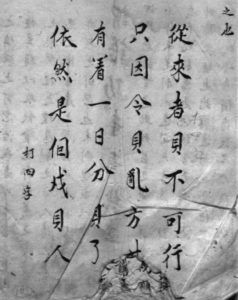 之也
從來者貝不可行
只因令貝亂方寸
有着一日分貝了
依然是個戎貝人
打四字